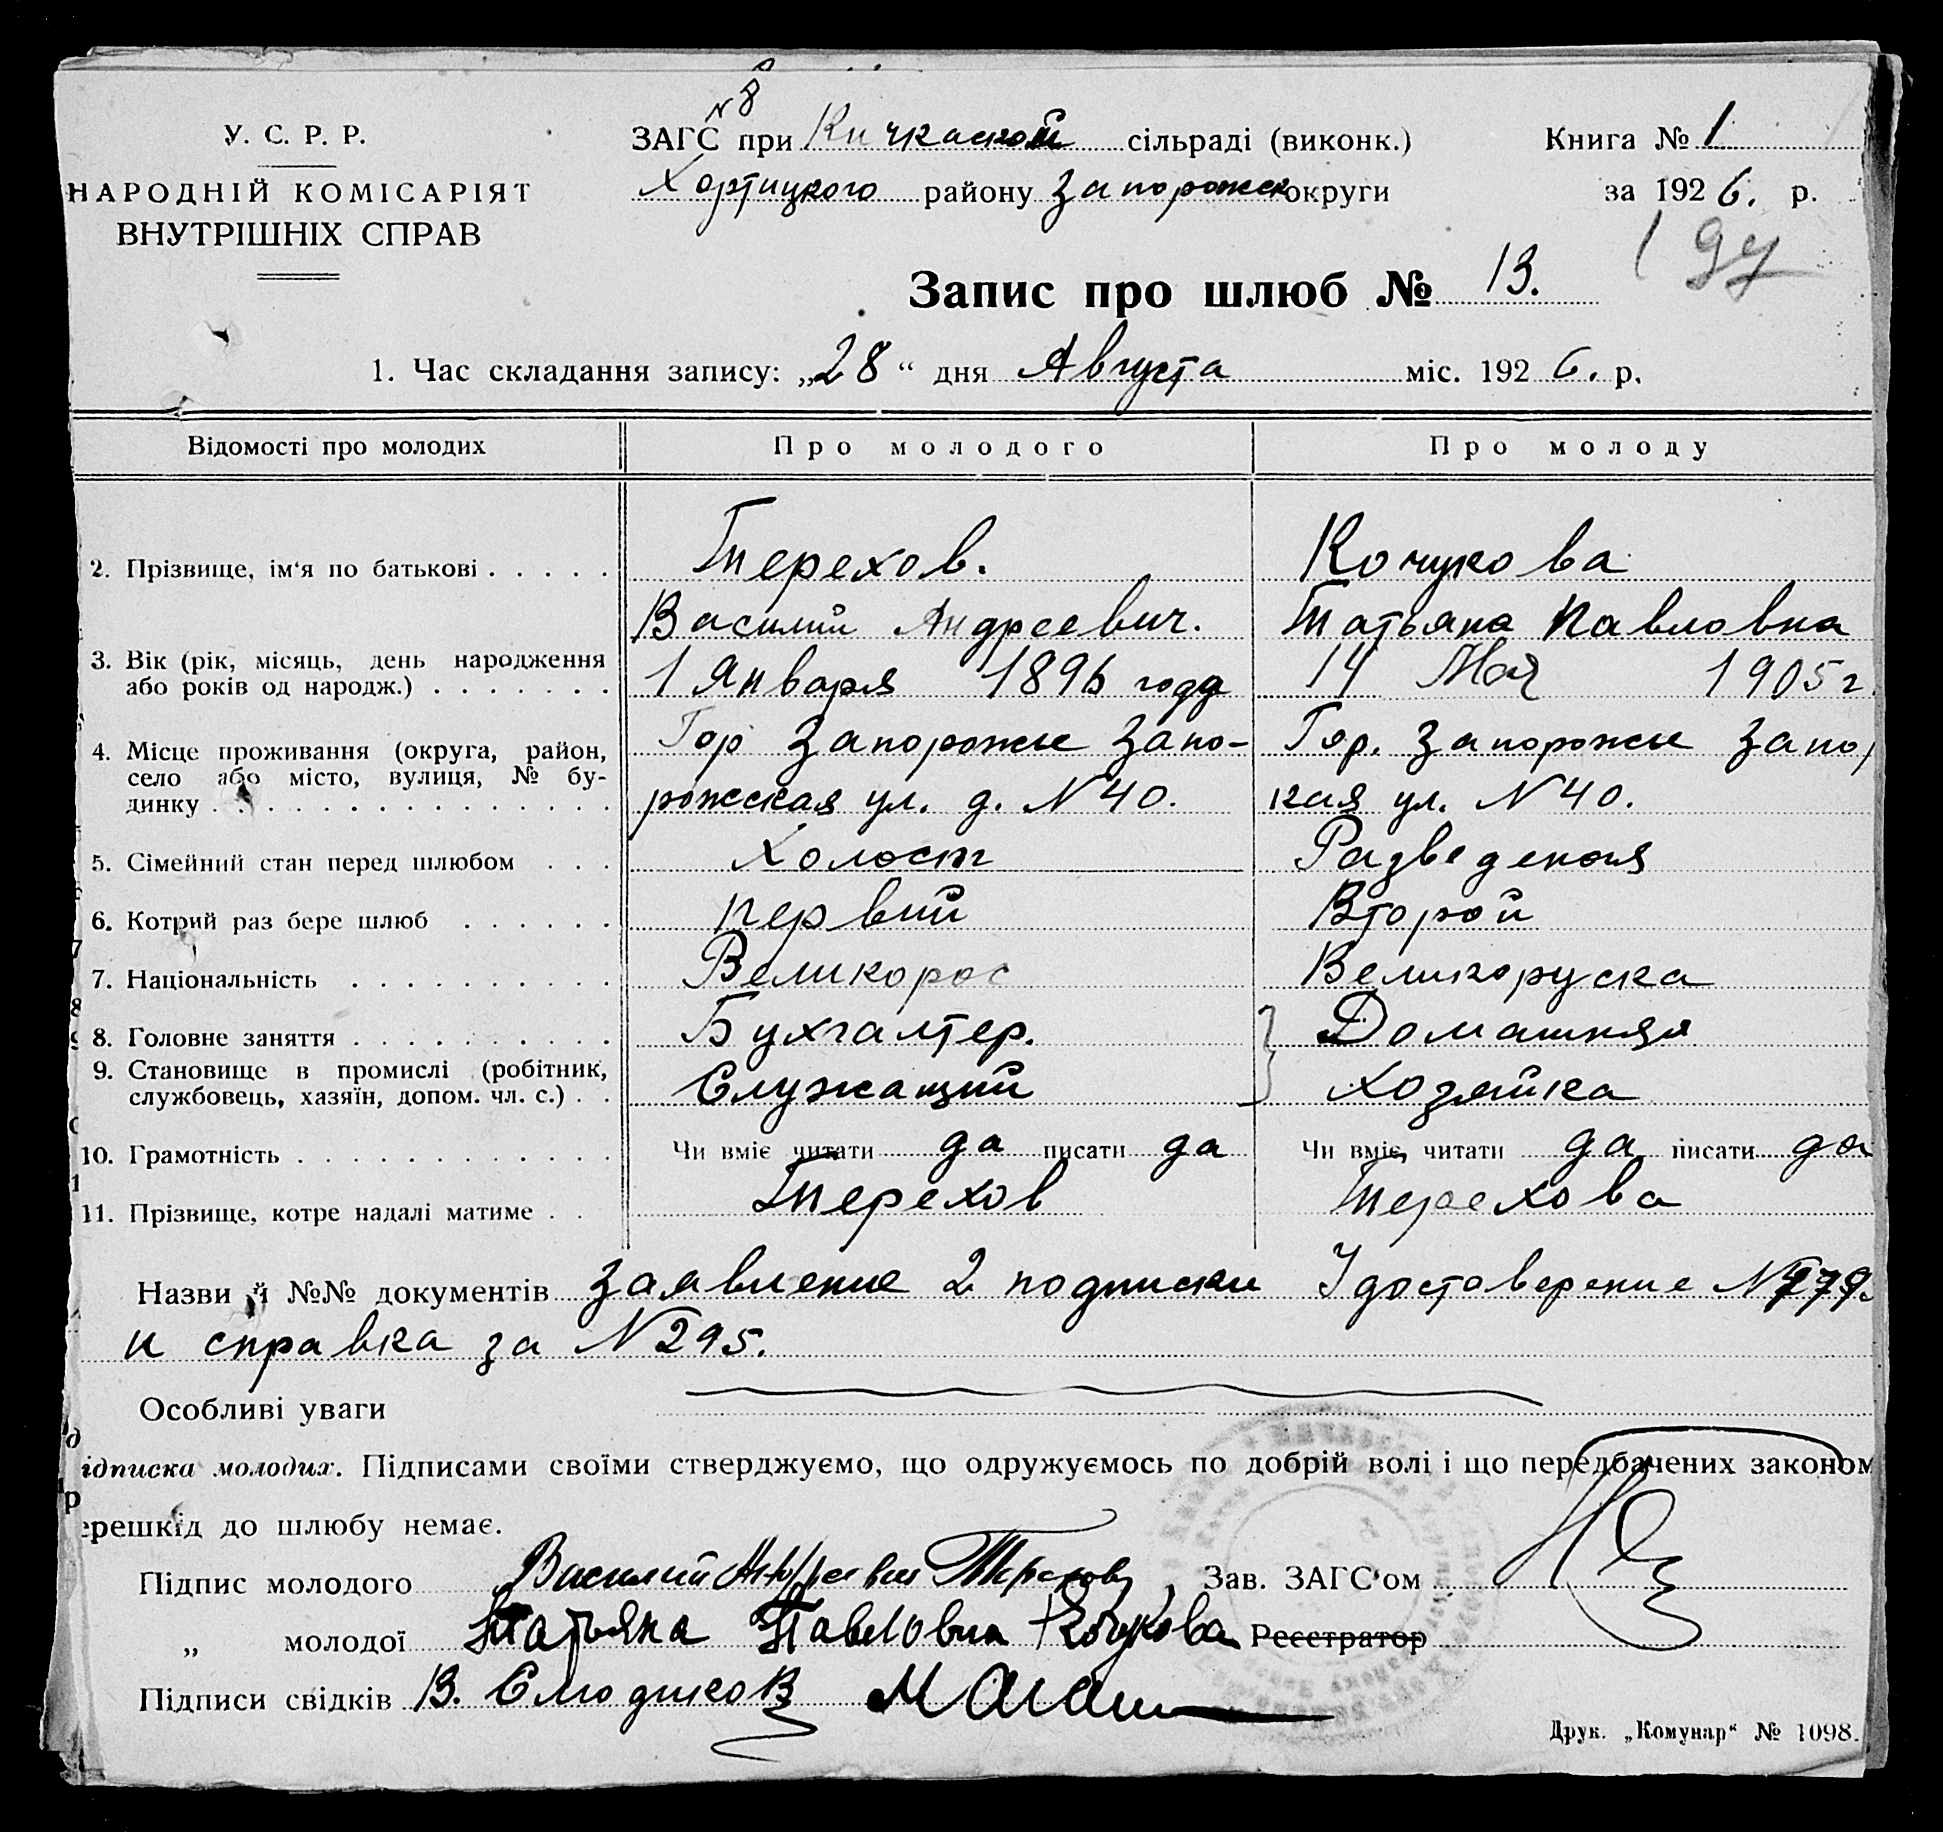 № 8
У. С. Р. Р.
НАРОДНІЙ КОМІСАРІЯТ
ВНУТРІШНІХ СПРАВ
ЗАГС при Кичкаской сільраді (виконк.)
Хортицкого району Запорожск округи
Книга № 1
за 1926. р.
Запис про шлюб № 13.
1. Час складання запису: „28“ дня Августа міс. 1926. р.
Відомості про молодих Про молодого Про молоду
2. Прізвище, ім‘я по батькові Терехов. Кочукова
Василий Андреевич. Татьяна Павловна
3. Вік (рік, місяць, день народження
або років од народж.) 1 Января 1896 года 14 Мая 1905 г.
4. Місце проживання (округа, район,
село або місто, вулиця, № бу-
динку Гор Запорожье Запо- Гор. Запорожье Запо
рожская ул. д. № 40. кая ул. № 40.
5. Сімейний стан перед шлюбом Холост Разведеная
6. Котрий раз бере шлюб первий Второй
7. Національність Великорос Великоруска
8. Головне заняття Бухгалтер. Домашняя
9. Становище в промислі (робітник,
службовець, хазяїн, допом. чл. с.) Служащий Хозяйка
10. Грамотність Чи вміє читати да писати да Чи вміє читати да писати да
11. Прізвище, котре надалі матиме Терехов Терехова
Назви й №№ документів Заявление 2 подписки Удостоверение №
и справка за № 295.
Особливі уваги
ідписка молодих. Підписами своїми стверджуємо, що одружуємось по добрій волі і що передбачених законом
ерешкід до шлюбу немає.
Підпис молодого Василий Андреевич Терехов Зав. ЗАГС‘ом
„ молодої Татьяна Павловна Кочукова Реєстратор
Підписи свідків В.
Друк. „Комунар“ № 1098.